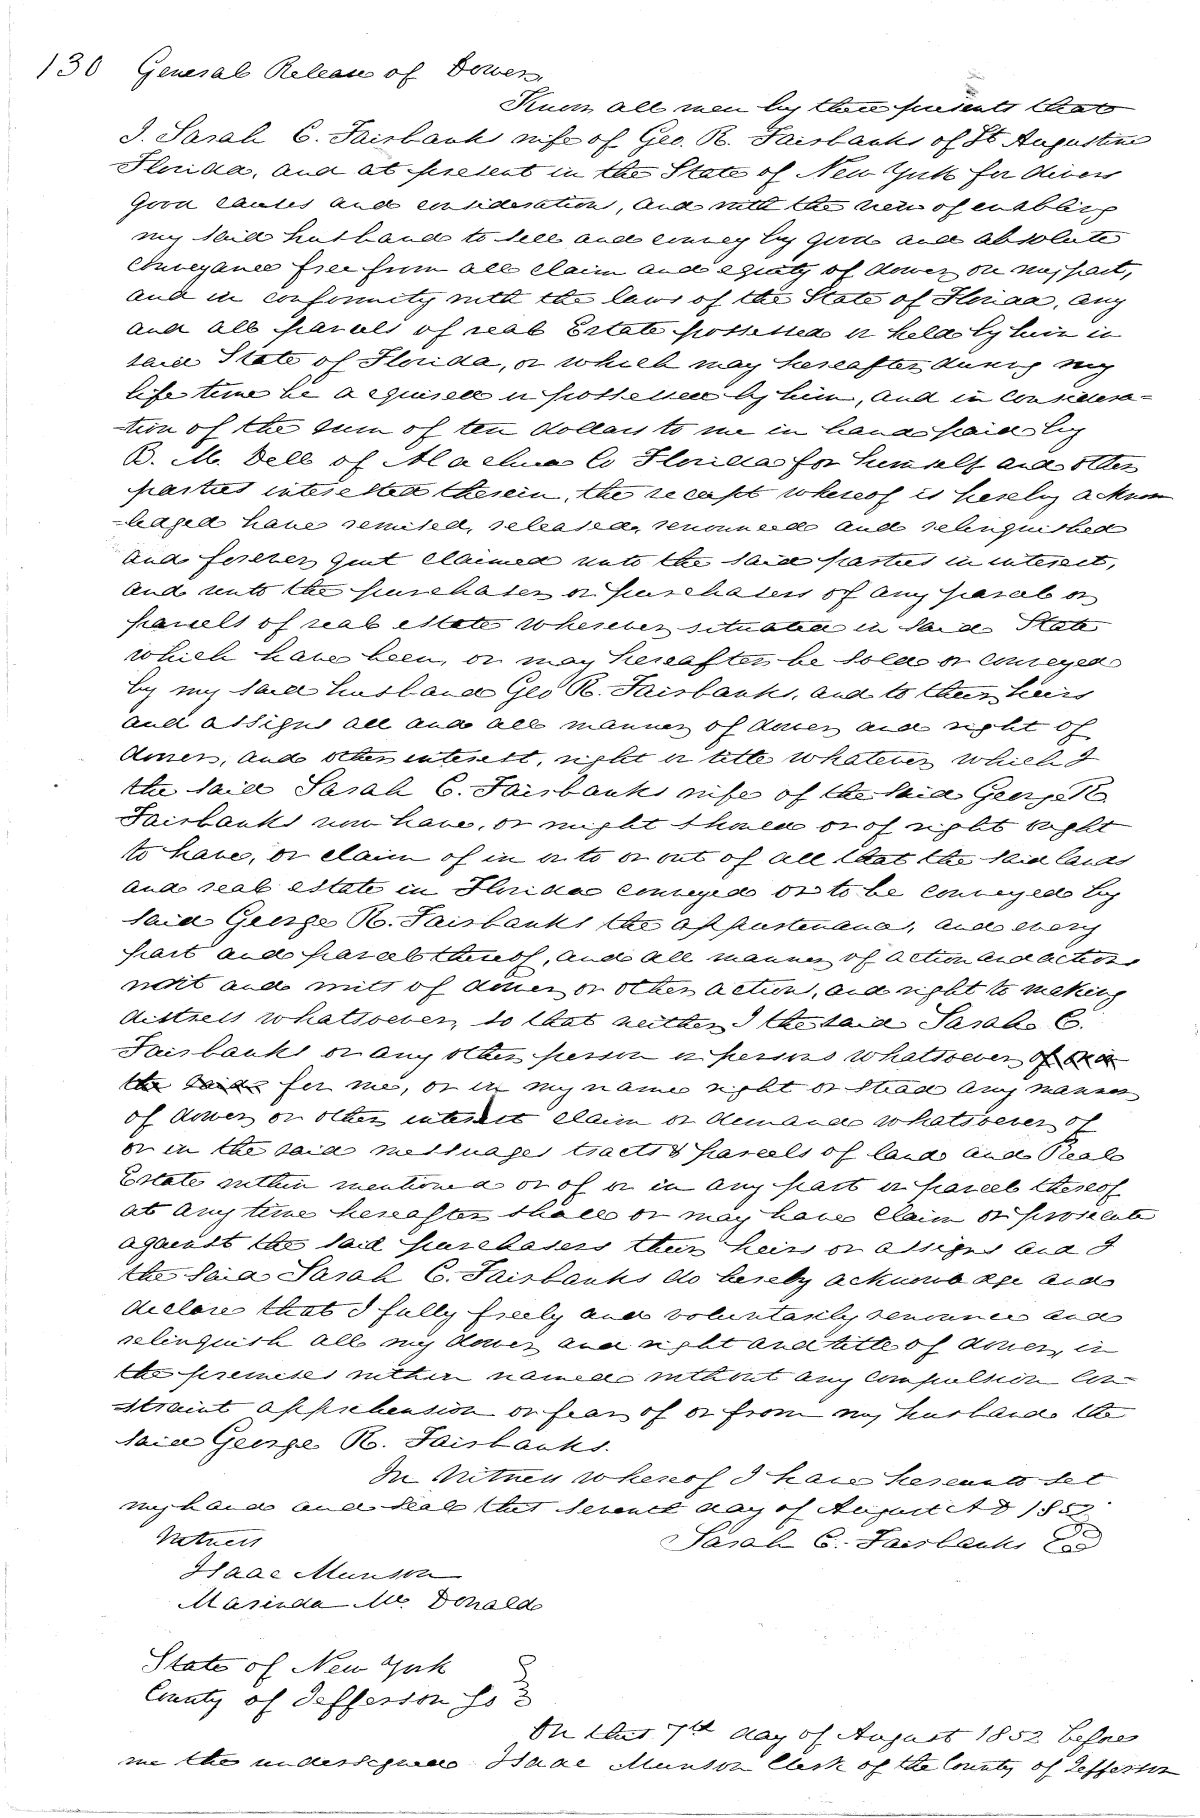 130 General Release of Dower.
Know all men by these presents that
I. Sarah C. Fairbanks wife of Geo. R. Fairbanks of St Augustine
Florida, and at present in the State of New York for divers
good causes and consideration, and with the view of enabling
my said husband to sell and convey by good and absolute
conveyance free from all claim and equity of dower on my part,
and in conformity with the laws of the State of Florida, any
and all parcels of real Estate possessed or held by him in
said State of Florida, or which may hereafter during my
life time be acquired or possessed by him, and in considera=
-tion of the sum of ten dollars to me in hand paid by
B. M. Dell of Alachua Co Florida for himself and other
parties interested therein, the receipt whereof is hereby acknow
-ledged have remised, released, renounced and relinquished
and forever quit claimed unto the said parties in interest,
and unto the purchaser or purchasers of any parcel or
parcels of real estate wherever situated in said State
which have been, or may hereafter be sold or conveyed
by my said husband Geo R. Fairbanks, and to their heirs
and assigns all and all manner of dower and right of
dower, and other interest, right or title whatever which I
the said Sarah C. Fairbanks wife of the said George R
Fairbanks now have, or might should or of right ought
to have, or claim of in or to or out of all that the said lands
and real estate in Florida conveyed or to be conveyed by
said George R. Fairbanks the appurtenance, and every
part and parcel thereof, and all manner of action and actions
writ and writs of dower or other action, and right to making
distress whatsoever, so that neither I the said Sarah C.
Fairbanks or any other person or persons whatsoever of
the said for me, or in my name right or stead any manner
of dower or other interest claim or demand whatsoever of
or in the said messuages tracts & parcels of land and Real
Estate within mentioned or of or in any part or parcel thereof
at any time hereafter shall or may have claim or prosecute
against the said purchasers their heirs or assigns and I
the said Sarah C. Fairbanks do hereby acknowledge and
declare that I fully freely and voluntarily renounce and
relinquish all my dower and right and title of dower, in
the premises within named without any compulsion con-
-straint apprehension or fear of or from my husband the
said George R. Fairbanks.
In Witness whereof I have hereunto set
my hand and seal this seventh day of August A D 1852
Witness Sarah C. Fairbanks
Isaac Munson
Marinda Mc Donald
State of New York
County of Jefferson SS
On this 7th day of August 1852 before
me the undersigned Isaac Munson Clerk of the County of Jefferson